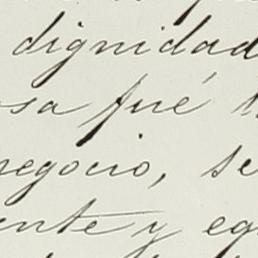 dignidad
sa fué
negocio, se
ente y eq